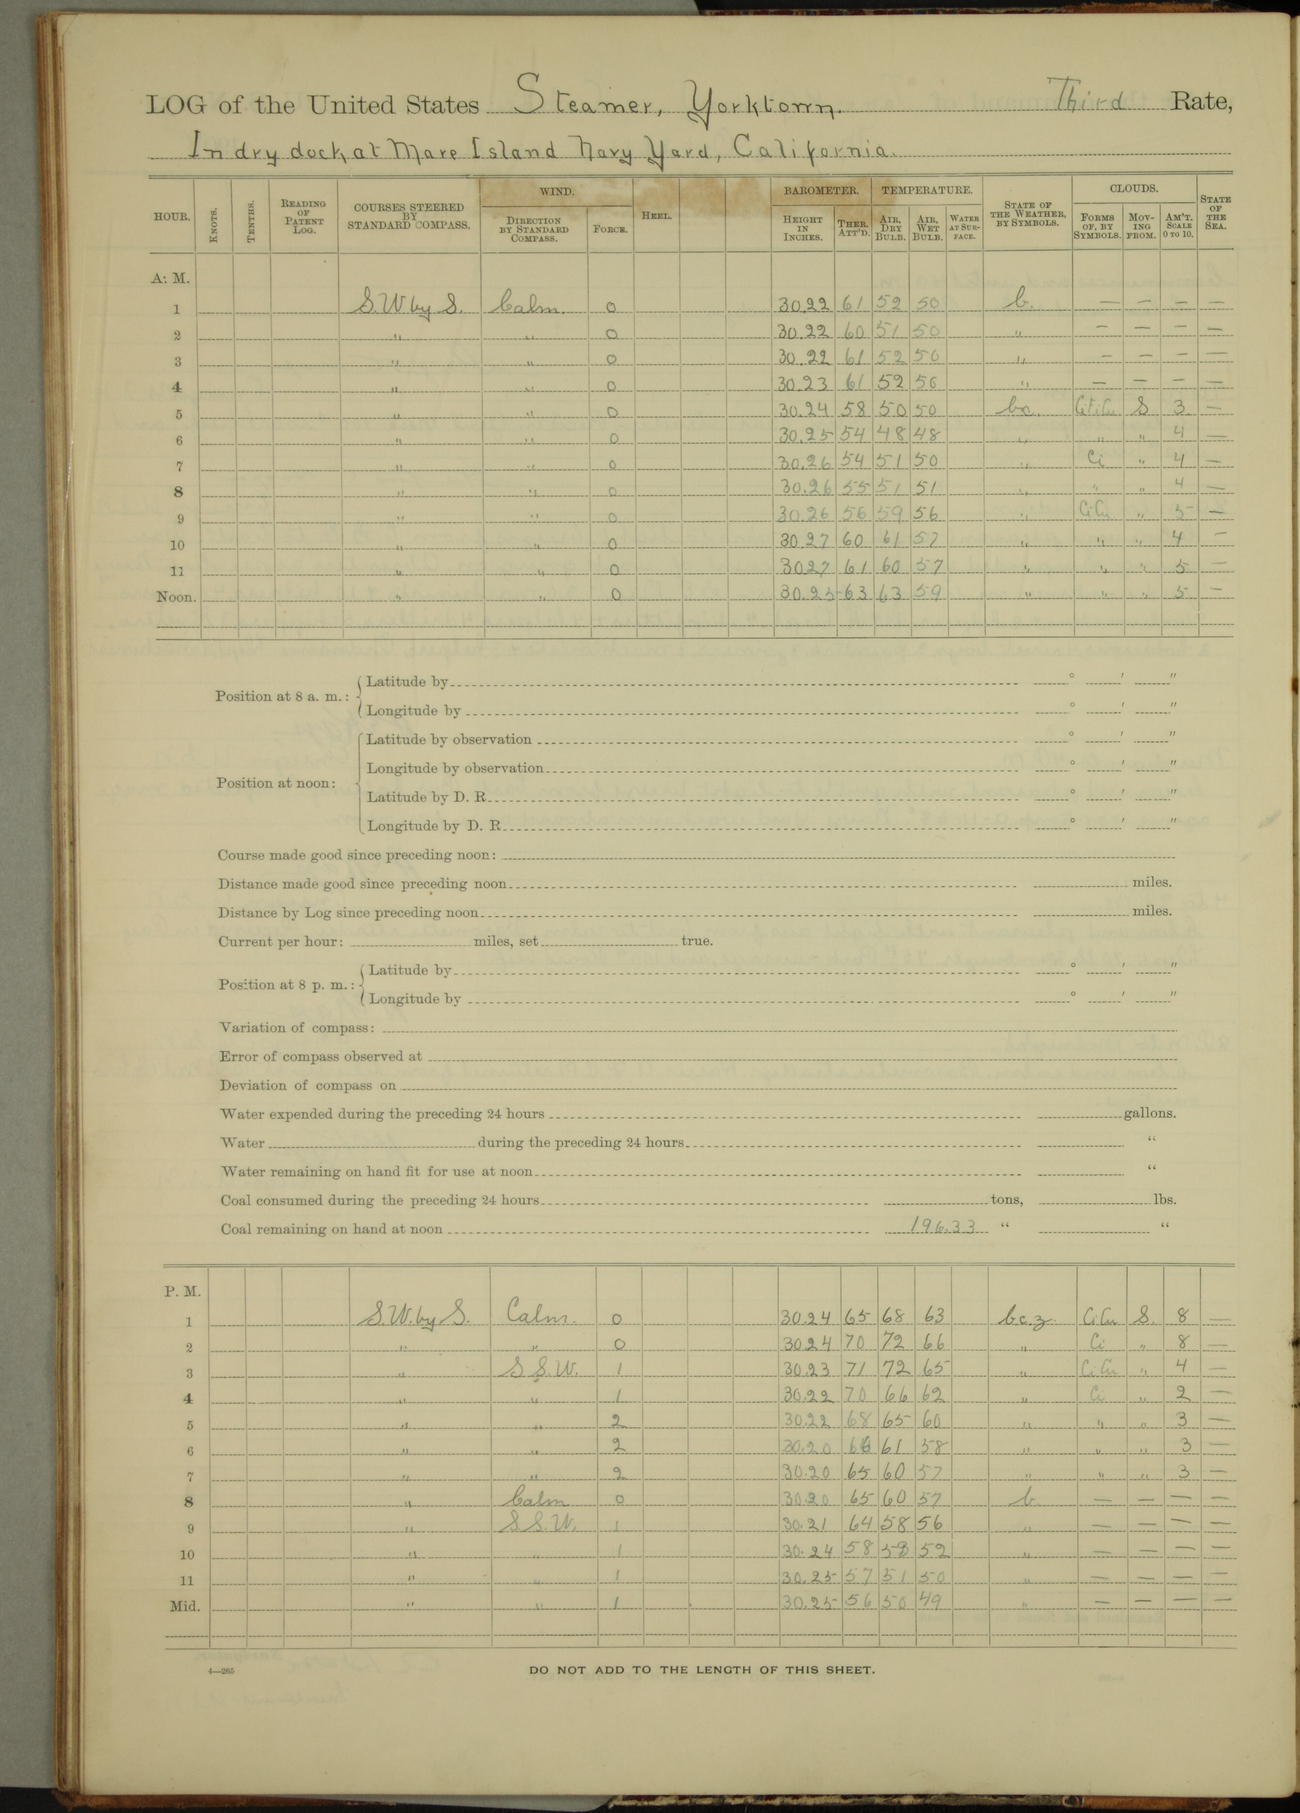 LOG of the United States Steamer, Yorktown. Third Rate,
In dry dock at Mare Island Navy Yard, California.
HOUR. KNOTS. TENTHS. READING OF PATENT LOG. COURSES STEERED BY STANDARD COMPASS. WIND. DIRECTION BY STANDARD COMPASS. FORCE. HEEL. BAROMETER. HEIGHT IN INCHES. THER. ATT'D. TEMPERATURE. AIR, DRY BULB. AIR, WET BULB. WATER AT SURFACE. STATE OF THE WEATHER, BY SYMBOLS. CLOUDS. FORMS OF, BY SYMBOLS. MOVING FROM. AM'T. SCALE 0 TO 10. STATE OF THE SEA.
A. M.
1 S.W. by S. Calm. 0 30.22 61 52 50 b. — — — —
2 " " 0 30.22 60 51 50 " — — — —
3 " " 0 30.22 61 52 50 " — — — —
4 " " 0 30.23 61 52 50 " — — — —
5 " " 0 30.24 58 50 50 bc. CiCu S 3 —
6 " " 0 30.25 54 48 48 " " " 4 —
7 " " 0 30.26 54 51 50 " Ci " 4 —
8 " " 0 30.26 55 51 51 " " " 4 —
9 " " 0 30.26 56 59 56 " CiCu " 5 —
10 " " 0 30.27 60 61 57 " " " 4 —
11 " " 0 30.27 61 60 57 " " " 5 —
Noon. " " 0 30.25 63 63 59 " " " 5 —
Position at 8 a. m.: Latitude by ° ′ ″
Longitude by ° ′ ″
Latitude by observation ° ′ ″
Longitude by observation ° ′ ″
Position at noon:
Latitude by D. R. ° ′ ″
Longitude by D. R. ° ′ ″
Course made good since preceding noon:
Distance made good since preceding noon miles.
Distance by Log since preceding noon miles.
Current per hour: miles, set true.
Position at 8 p. m.: Latitude by ° ′ ″
Longitude by ° ′ ″
Variation of compass:
Error of compass observed at
Deviation of compass on
Water expended during the preceding 24 hours gallons.
Water during the preceding 24 hours "
Water remaining on hand fit for use at noon "
Coal consumed during the preceding 24 hours tons, lbs.
Coal remaining on hand at noon 196.33 " "
P. M.
1 S.W. by S. Calm. 0 30.24 65 68 63 b.c.z. CiCu S. 8 —
2 " " 0 30.24 70 72 66 " Ci " 8 —
3 " S.S.W. 1 30.23 71 72 65 " CiCu " 4 —
4 " " 1 30.22 70 66 62 " Ci " 2 —
5 " " 2 30.22 68 65 60 " " " 3 —
6 " " 2 30.20 66 61 58 " " " 3 —
7 " " 2 30.20 65 60 57 " " " 3 —
8 " Calm 0 30.20 65 60 57 b. — — — —
9 " S.S.W. 1 30.21 64 58 56 " — — — —
10 " " 1 30.24 58 53 52 " — — — —
11 " " 1 30.25 57 51 50 " — — — —
Mid. " " 1 30.25 56 50 49 " — — — —
4—265 DO NOT ADD TO THE LENGTH OF THIS SHEET.